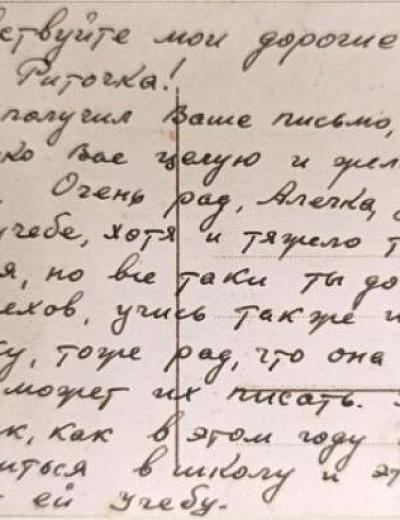 ствуйте мои дорогие
Риточка!
получил Ваше письмо,
ко Вас целую и жел
Очень рад, Алечка,
учебе, хотя и тяжело т
я, но все таки ты до
ехов, учись также и
у, тоже рад, что она
может их писать.
к, как в этом году
иться в школу и эт
ей учебу.